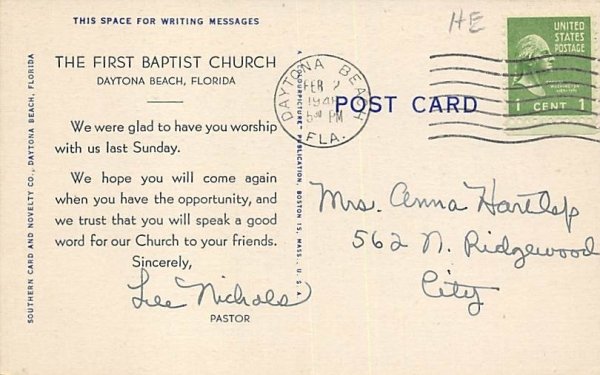 THIS SPACE FOR WRITING MESSAGES
HE
THE FIRST BAPTIST CHURCH
DAYTONA BEACH, FLORIDA
We were glad to have you worship
with us last Sunday.
We hope you will come again
when you have the opportunity, and
we trust that you will speak a good
word for our Church to your friends.
Sincerely,
Lee Nichols
PASTOR
SOUTHERN CARD AND NOVELTY CO., DAYTONA BEACH, FLORIDA
PUBLICATION, BOSTON 15, MASS., U.S.A.
DAYTONA BEACH
FEB 2
PM
FLA.
POST CARD
UNITED
STATES
POSTAGE
WASHINGTON
1 CENT 1
Mrs. Anna
562 N. Ridgewood
City